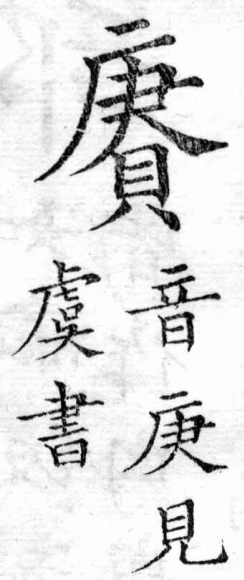 賡
音庚見
虞書